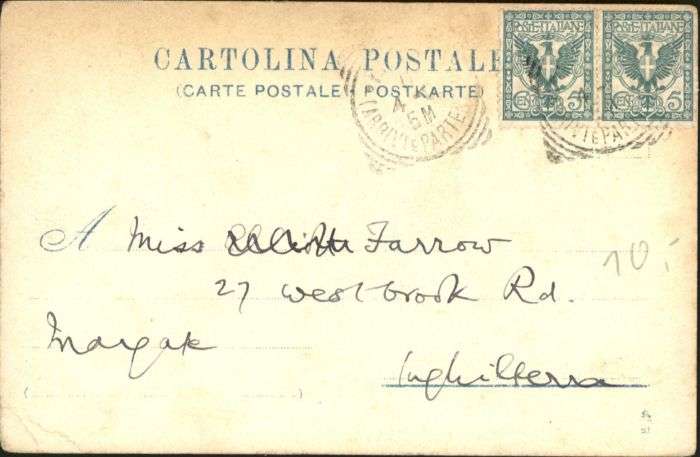 CARTOLINA POSTALE
(CARTE POSTALE - POSTKARTE)
POSTE ITALIANE
POSTE ITALIANE
CENT. 5
CENT. 5
5 M
(ARRIVI E PARTENZE)
A Miss Farrow
27 Westbrook Rd.
Margate
Inghilterra
10.-